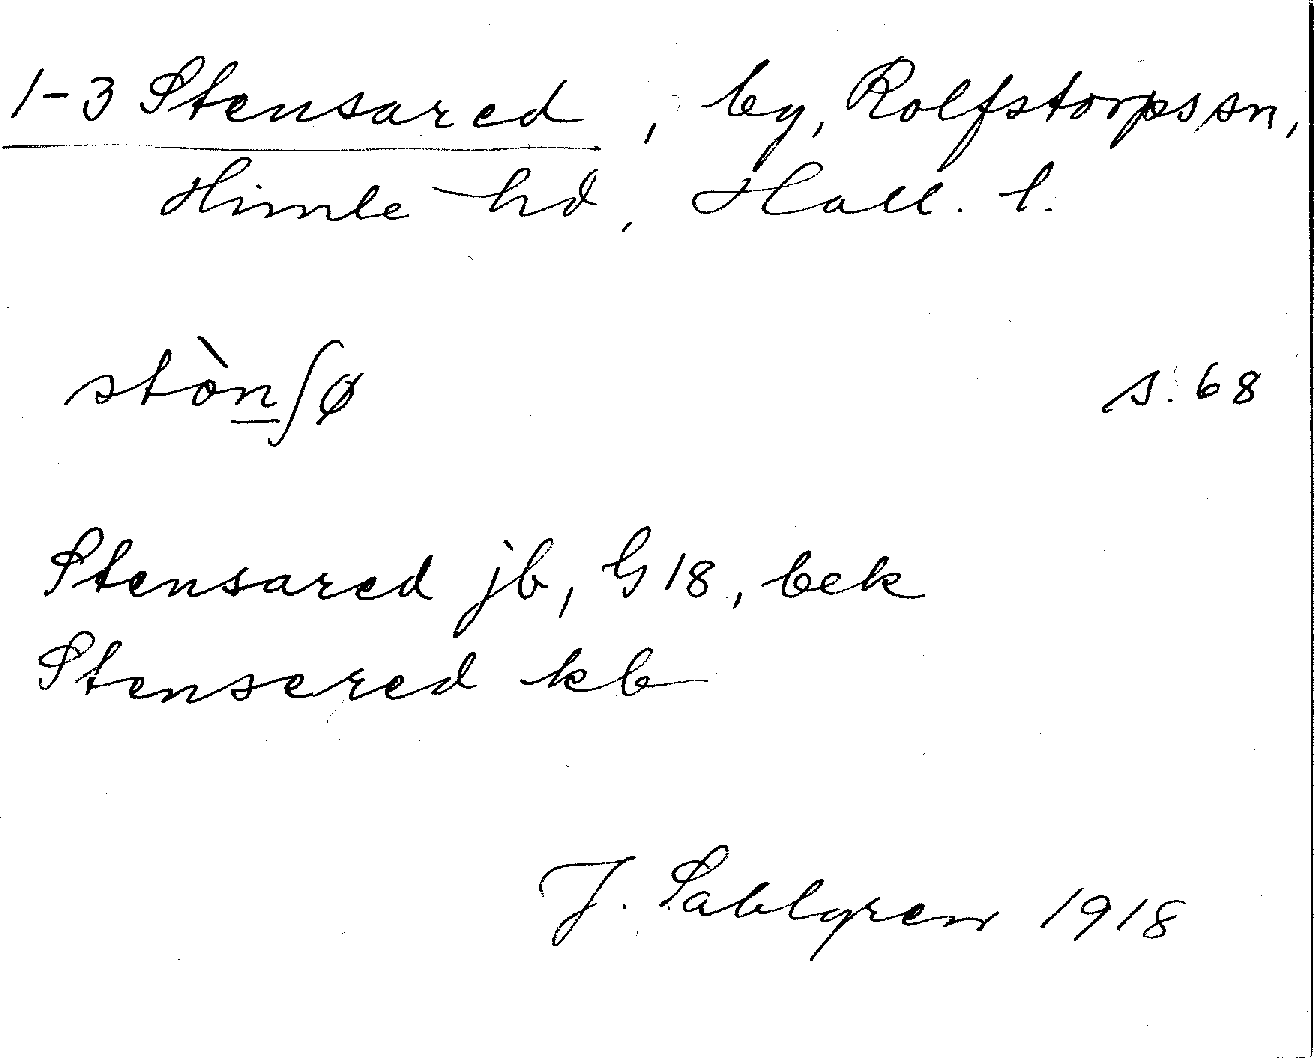 1-3 Stensared, by, Rolfstorps sn,
Himle hd, Hall. l.
stòn̲ʃø s. 68
Stensared jb, G 18, bek
Stensered kb
J. Sahlgren 1918